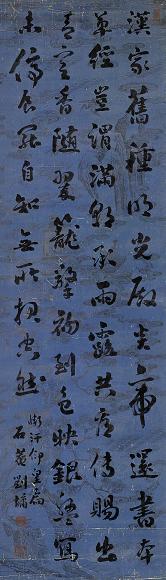 漢家舊種明光殿炎帝還書本
草經豈謂滿朝承雨露共看傳賜出
青冥香隨翠籠擎初到色映銀盤寫
未停食罷自知無所報空然
慚汗仰皇扃
石菴劉墉